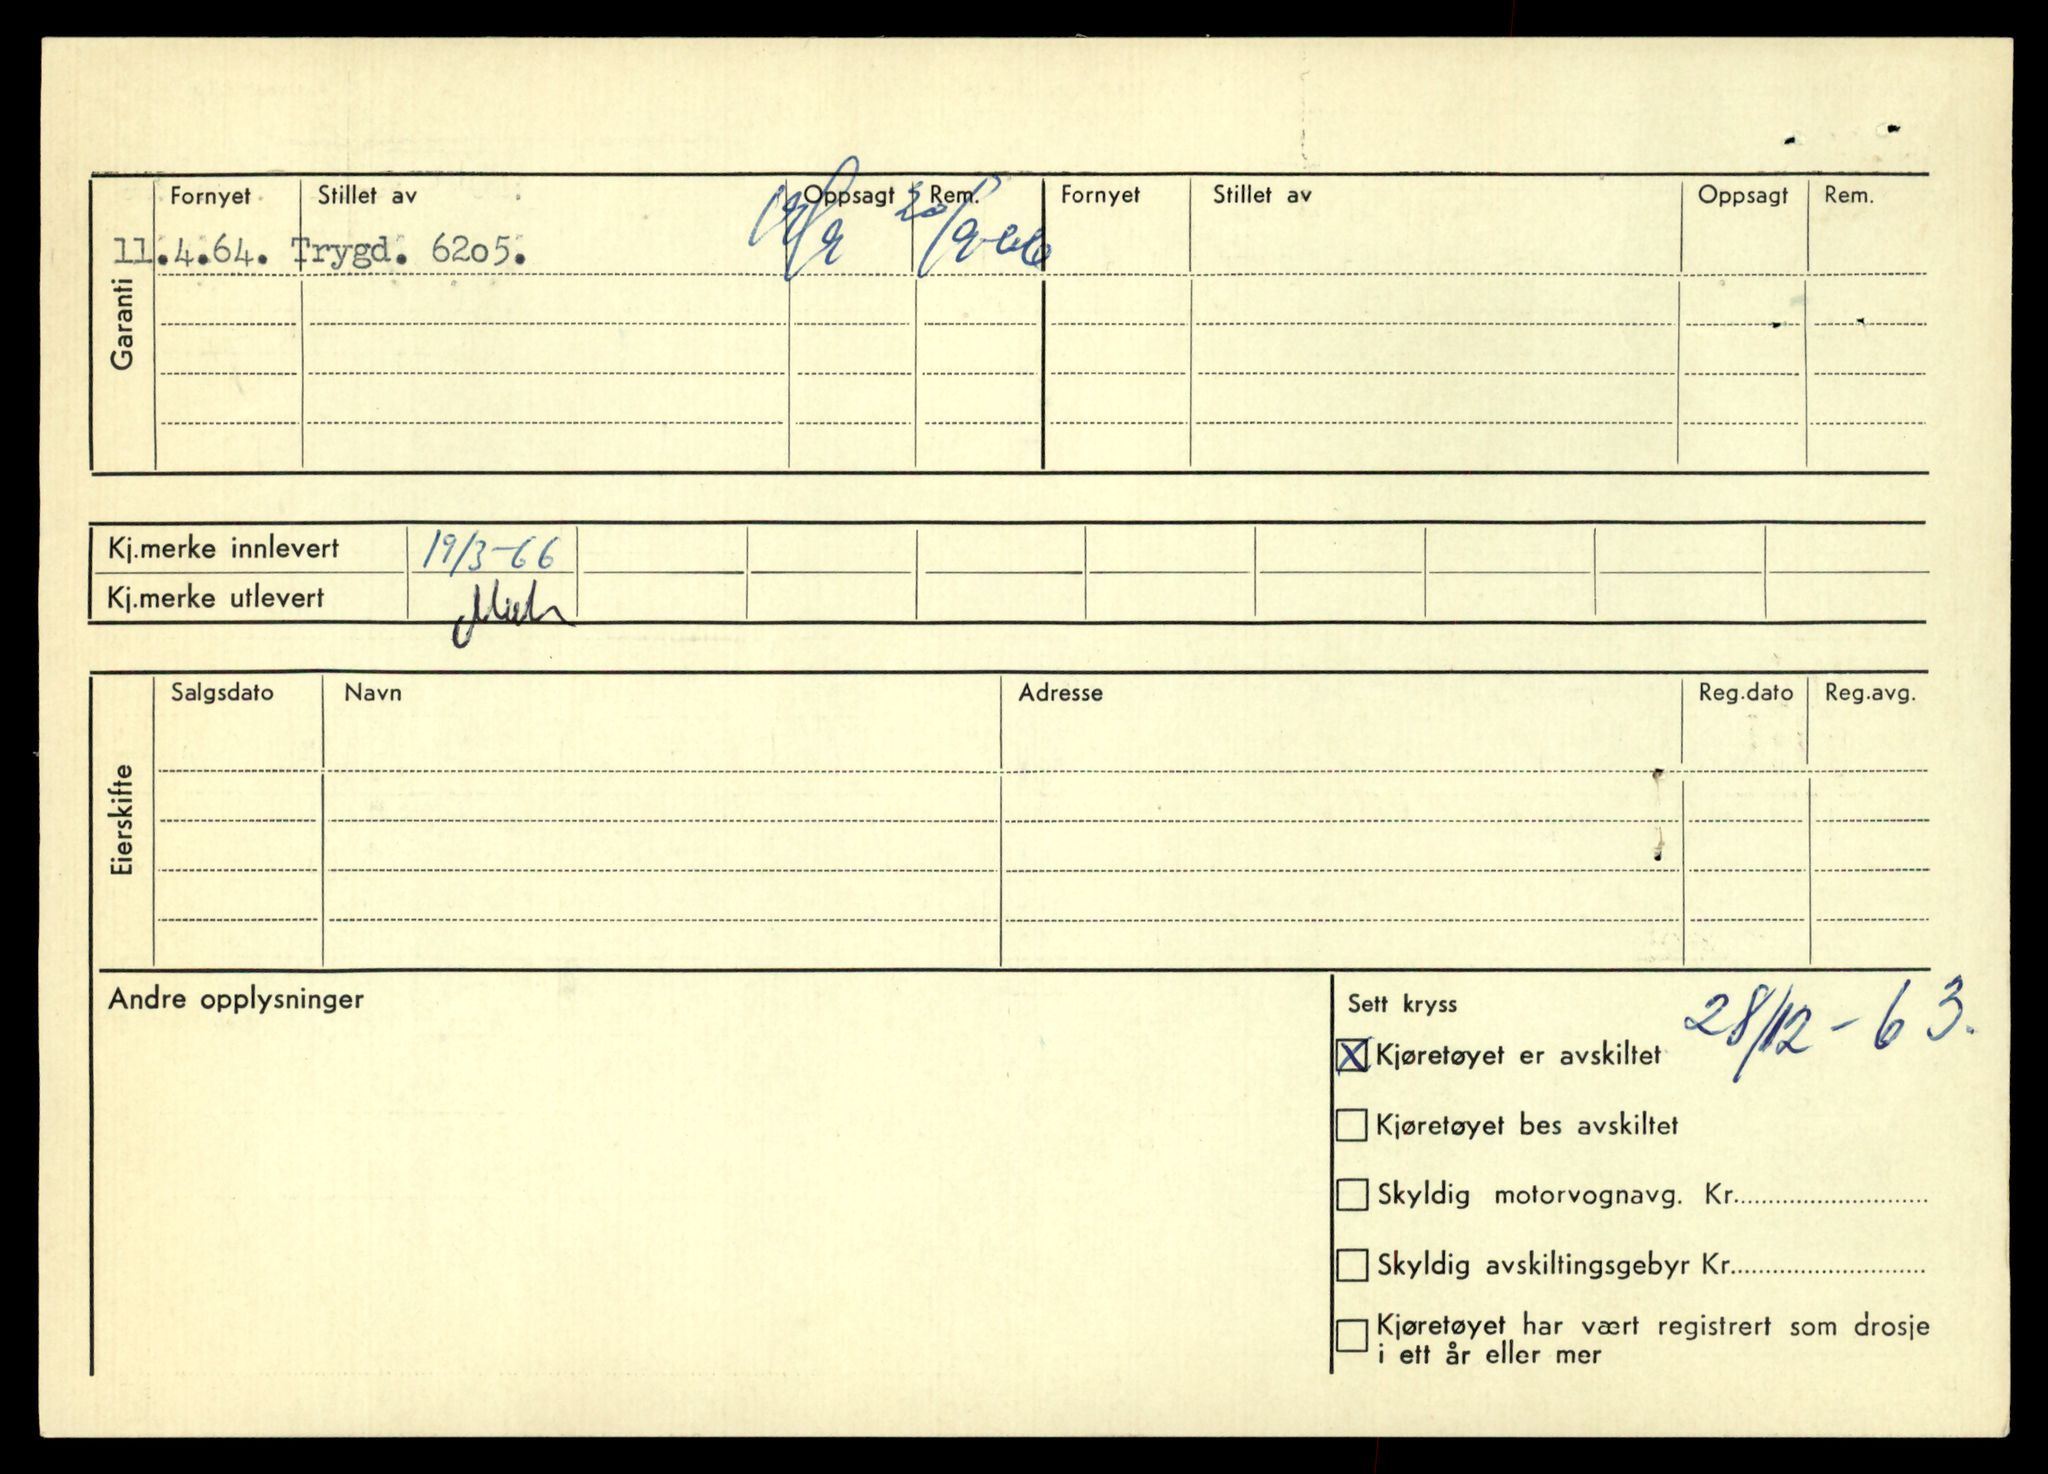 Garanti
Fornyet Stillet av Oppsagt Rem. Fornyet Stillet av Oppsagt Rem.
11.4.64. Trygd. 6205. 20/9-66
Kj.merke innlevert 19/3-66
Kj.merke utlevert
Eierskifte
Salgsdato Navn Adresse Reg.dato Reg.avg.
Andre opplysninger
Sett kryss
X Kjøretøyet er avskiltet 28/12-63.
Kjøretøyet bes avskiltet
Skyldig motorvognavg. Kr.
Skyldig avskiltingsgebyr Kr.
Kjøretøyet har vært registrert som drosje
i ett år eller mer